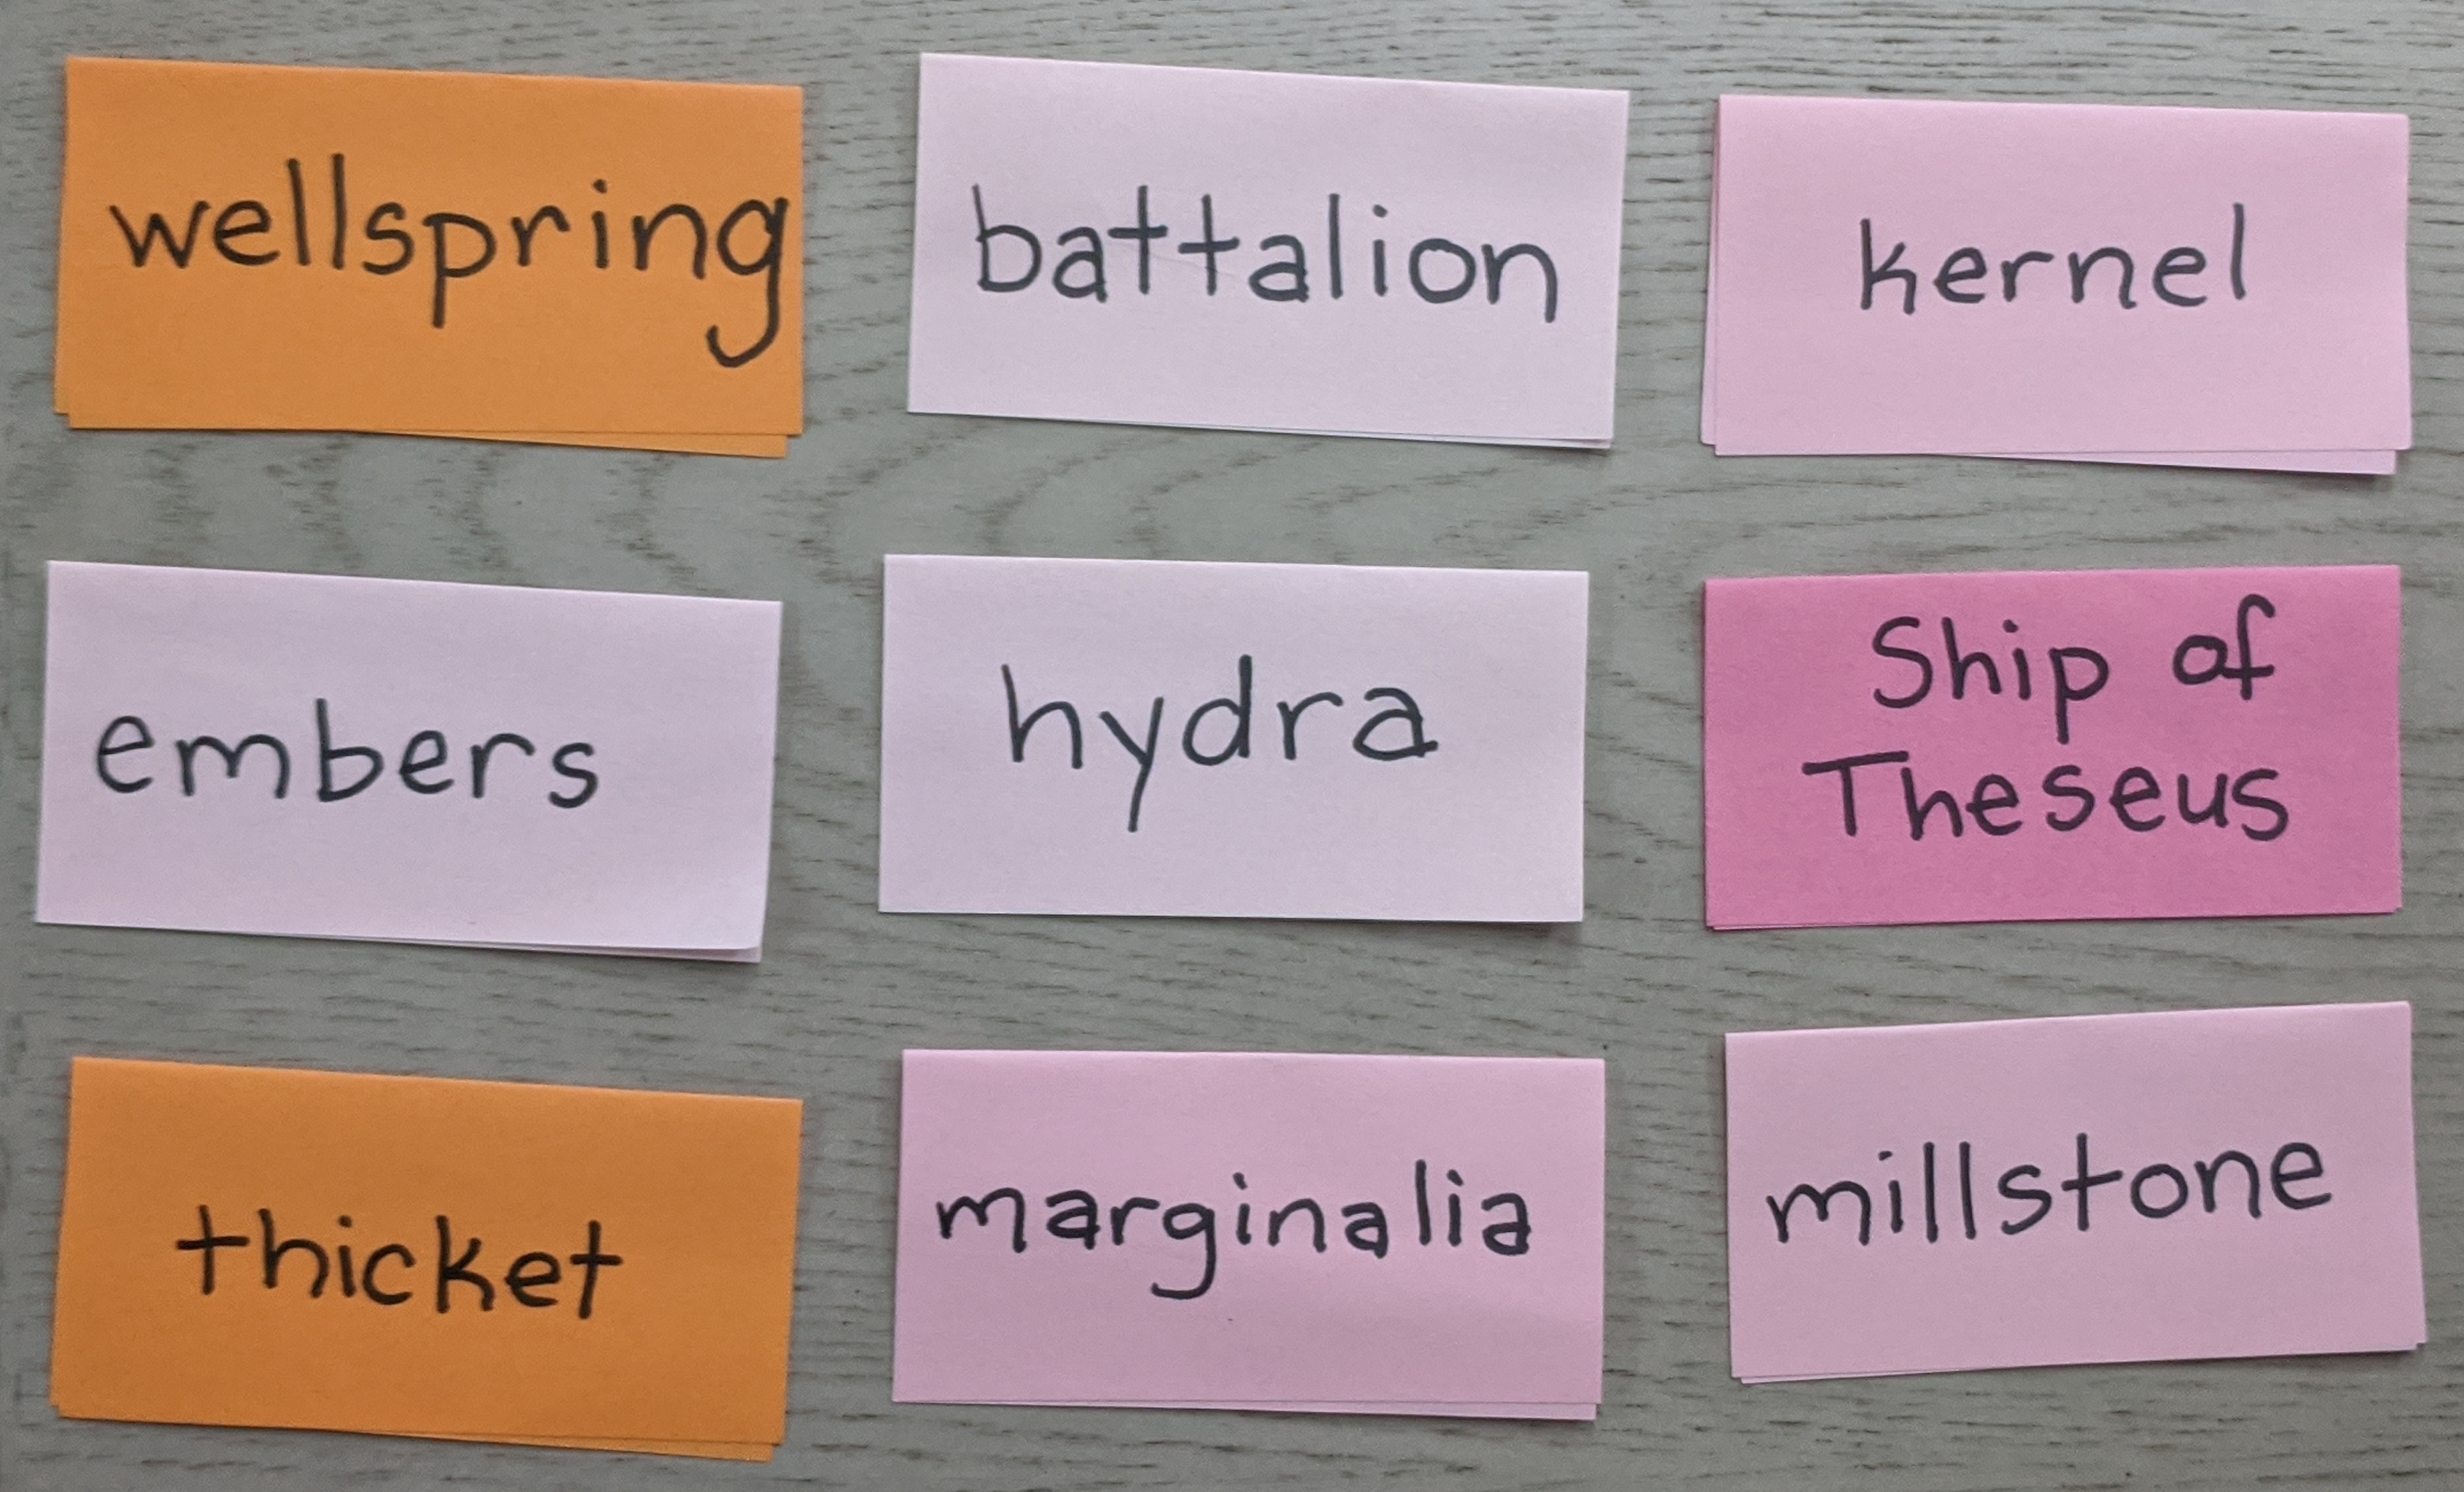 wellspring
battalion
kernel
embers
hydra
Ship of
Theseus
thicket
marginalia
millstone